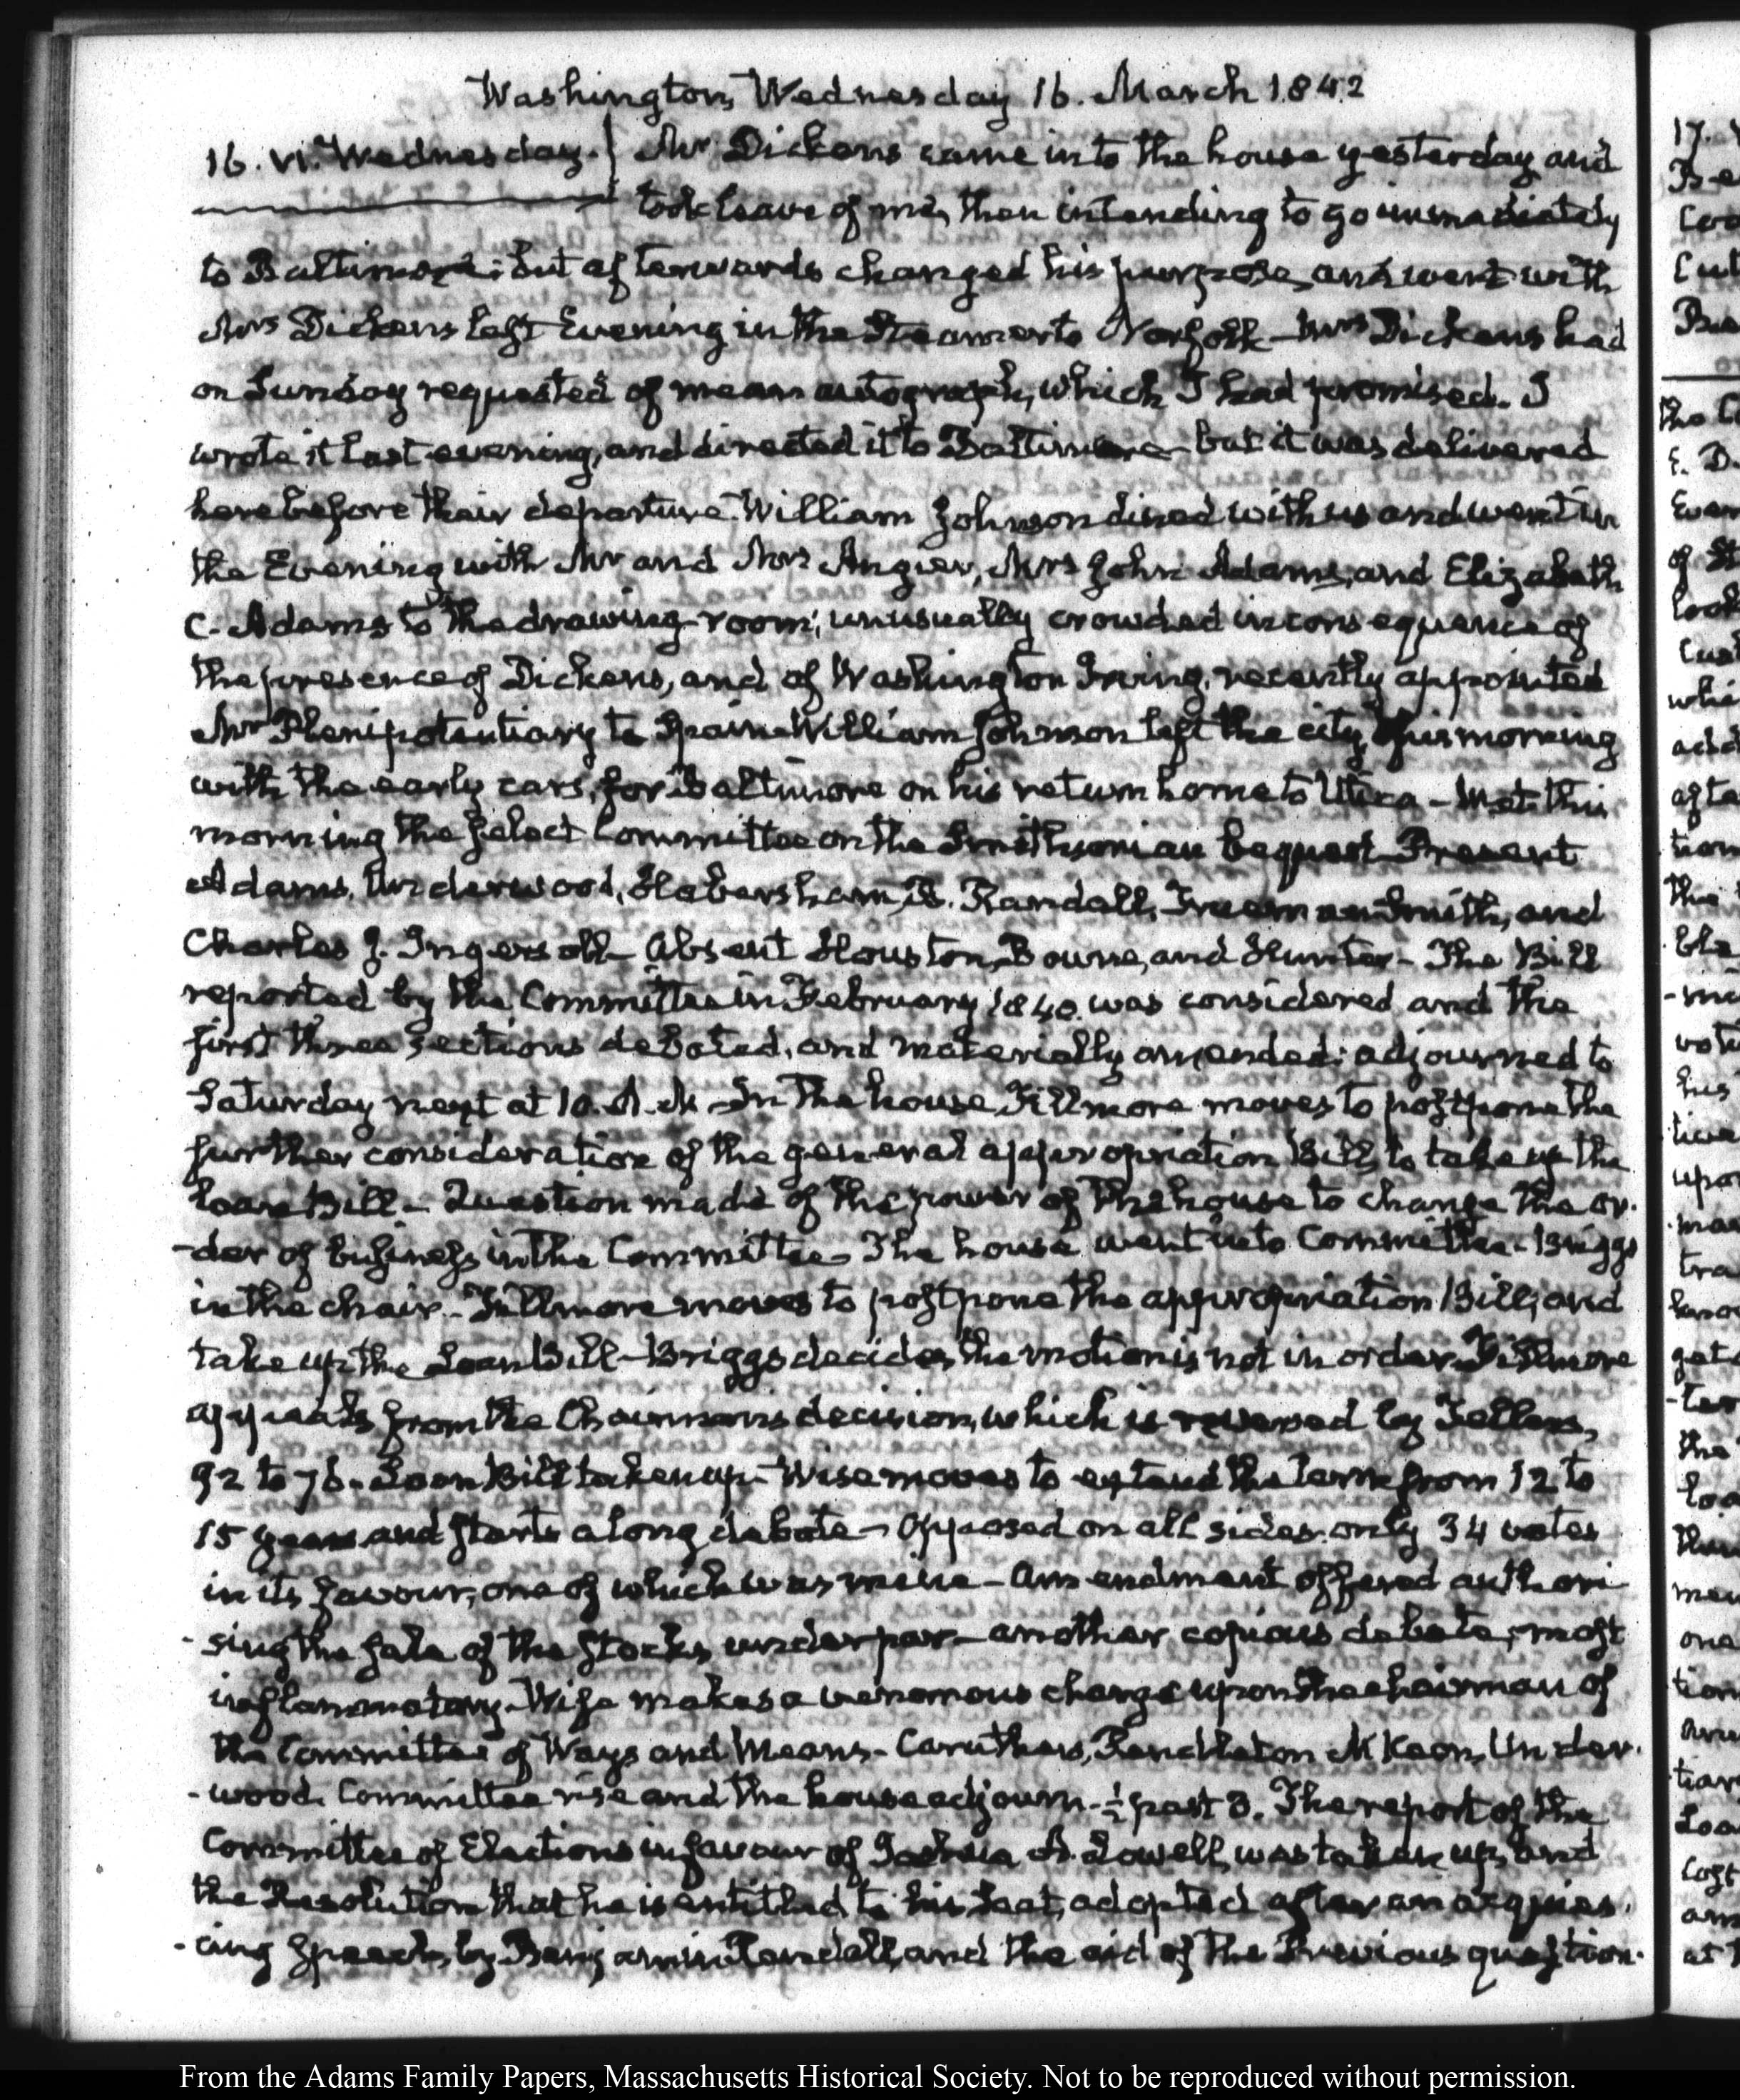 Washington, Wednesday 16. March 1842
16. VI. Wednesday. Mr Dickens came into the house yesterday and
took leave of me, then intending to go immediately
to Baltimore: but afterwards changed his purpose, and went with
Mrs Dickens last Evening in the Steamer to Norfolk - Mrs Dickens had
on Sunday requested of me an autograph, which I had promised. I
wrote it last evening, and directed it to Baltimore - but it was delivered
here before their departure. William Johnson dined with us and went in
the Evening with Mr and Mrs Angier, Mrs John Adams, and Elizabeth
C. Adams to the drawing-room; unusually crowded in consequence of
the presence of Dickens, and of Washington Irving, recently appointed
Mr Plenipotentiary to Spain. William Johnson left the city this morning
with the early cars, for Baltimore on his return home to Utica - Met this
morning the Select Committee on the Smithsonian bequest. Present
Adams, Underwood, Habersham, B. Randall, Truman Smith, and
Charles J. Ingersoll - Absent Houston, Bowne, and Hunter - The Bill
reported by the Committee in February 1840 was considered and the
first three sections debated, and materially amended: adjourned to
Saturday next at 10. A.M - In the house Fillmore moves to postpone the
further consideration of the general appropriation Bill, to take up the
loan Bill - Question made of the power of the house to change the or-
-der of business in the Committee - The house went into Committee - Briggs
in the chair - Fillmore moves to postpone the appropriation Bill, and
take up the Loan Bill - Briggs decides the motion is not in order. Fillmore
appeals from the Chairman's decision, which is reversed by Tellers,
92 to 76. Loan Bill taken up - Wise moves to extend the term from 12 to
15 years and starts a long debate - Opposed on all sides. only 34 votes
in its favour, one of which was mine - Amendment offered authori-
-sing the sale of the stocks under par - another copious debate, most
inflammatory. Wise makes a venomous charge upon the chairman of
the Committee of Ways and Means - Caruthers, Pendleton M Keon, Under-
-wood. Committee rise and the house adjourn - ½ past 3. The report of the
Committee of Elections in favour of Joshua A. Lowell, was taken up, and
the Resolution that he is entitled to his Seat, adopted after an acquies-
-cing speech, by Benjamin Randall, and the aid of the Previous question.
From the Adams Family Papers, Massachusetts Historical Society. Not to be reproduced without permission.